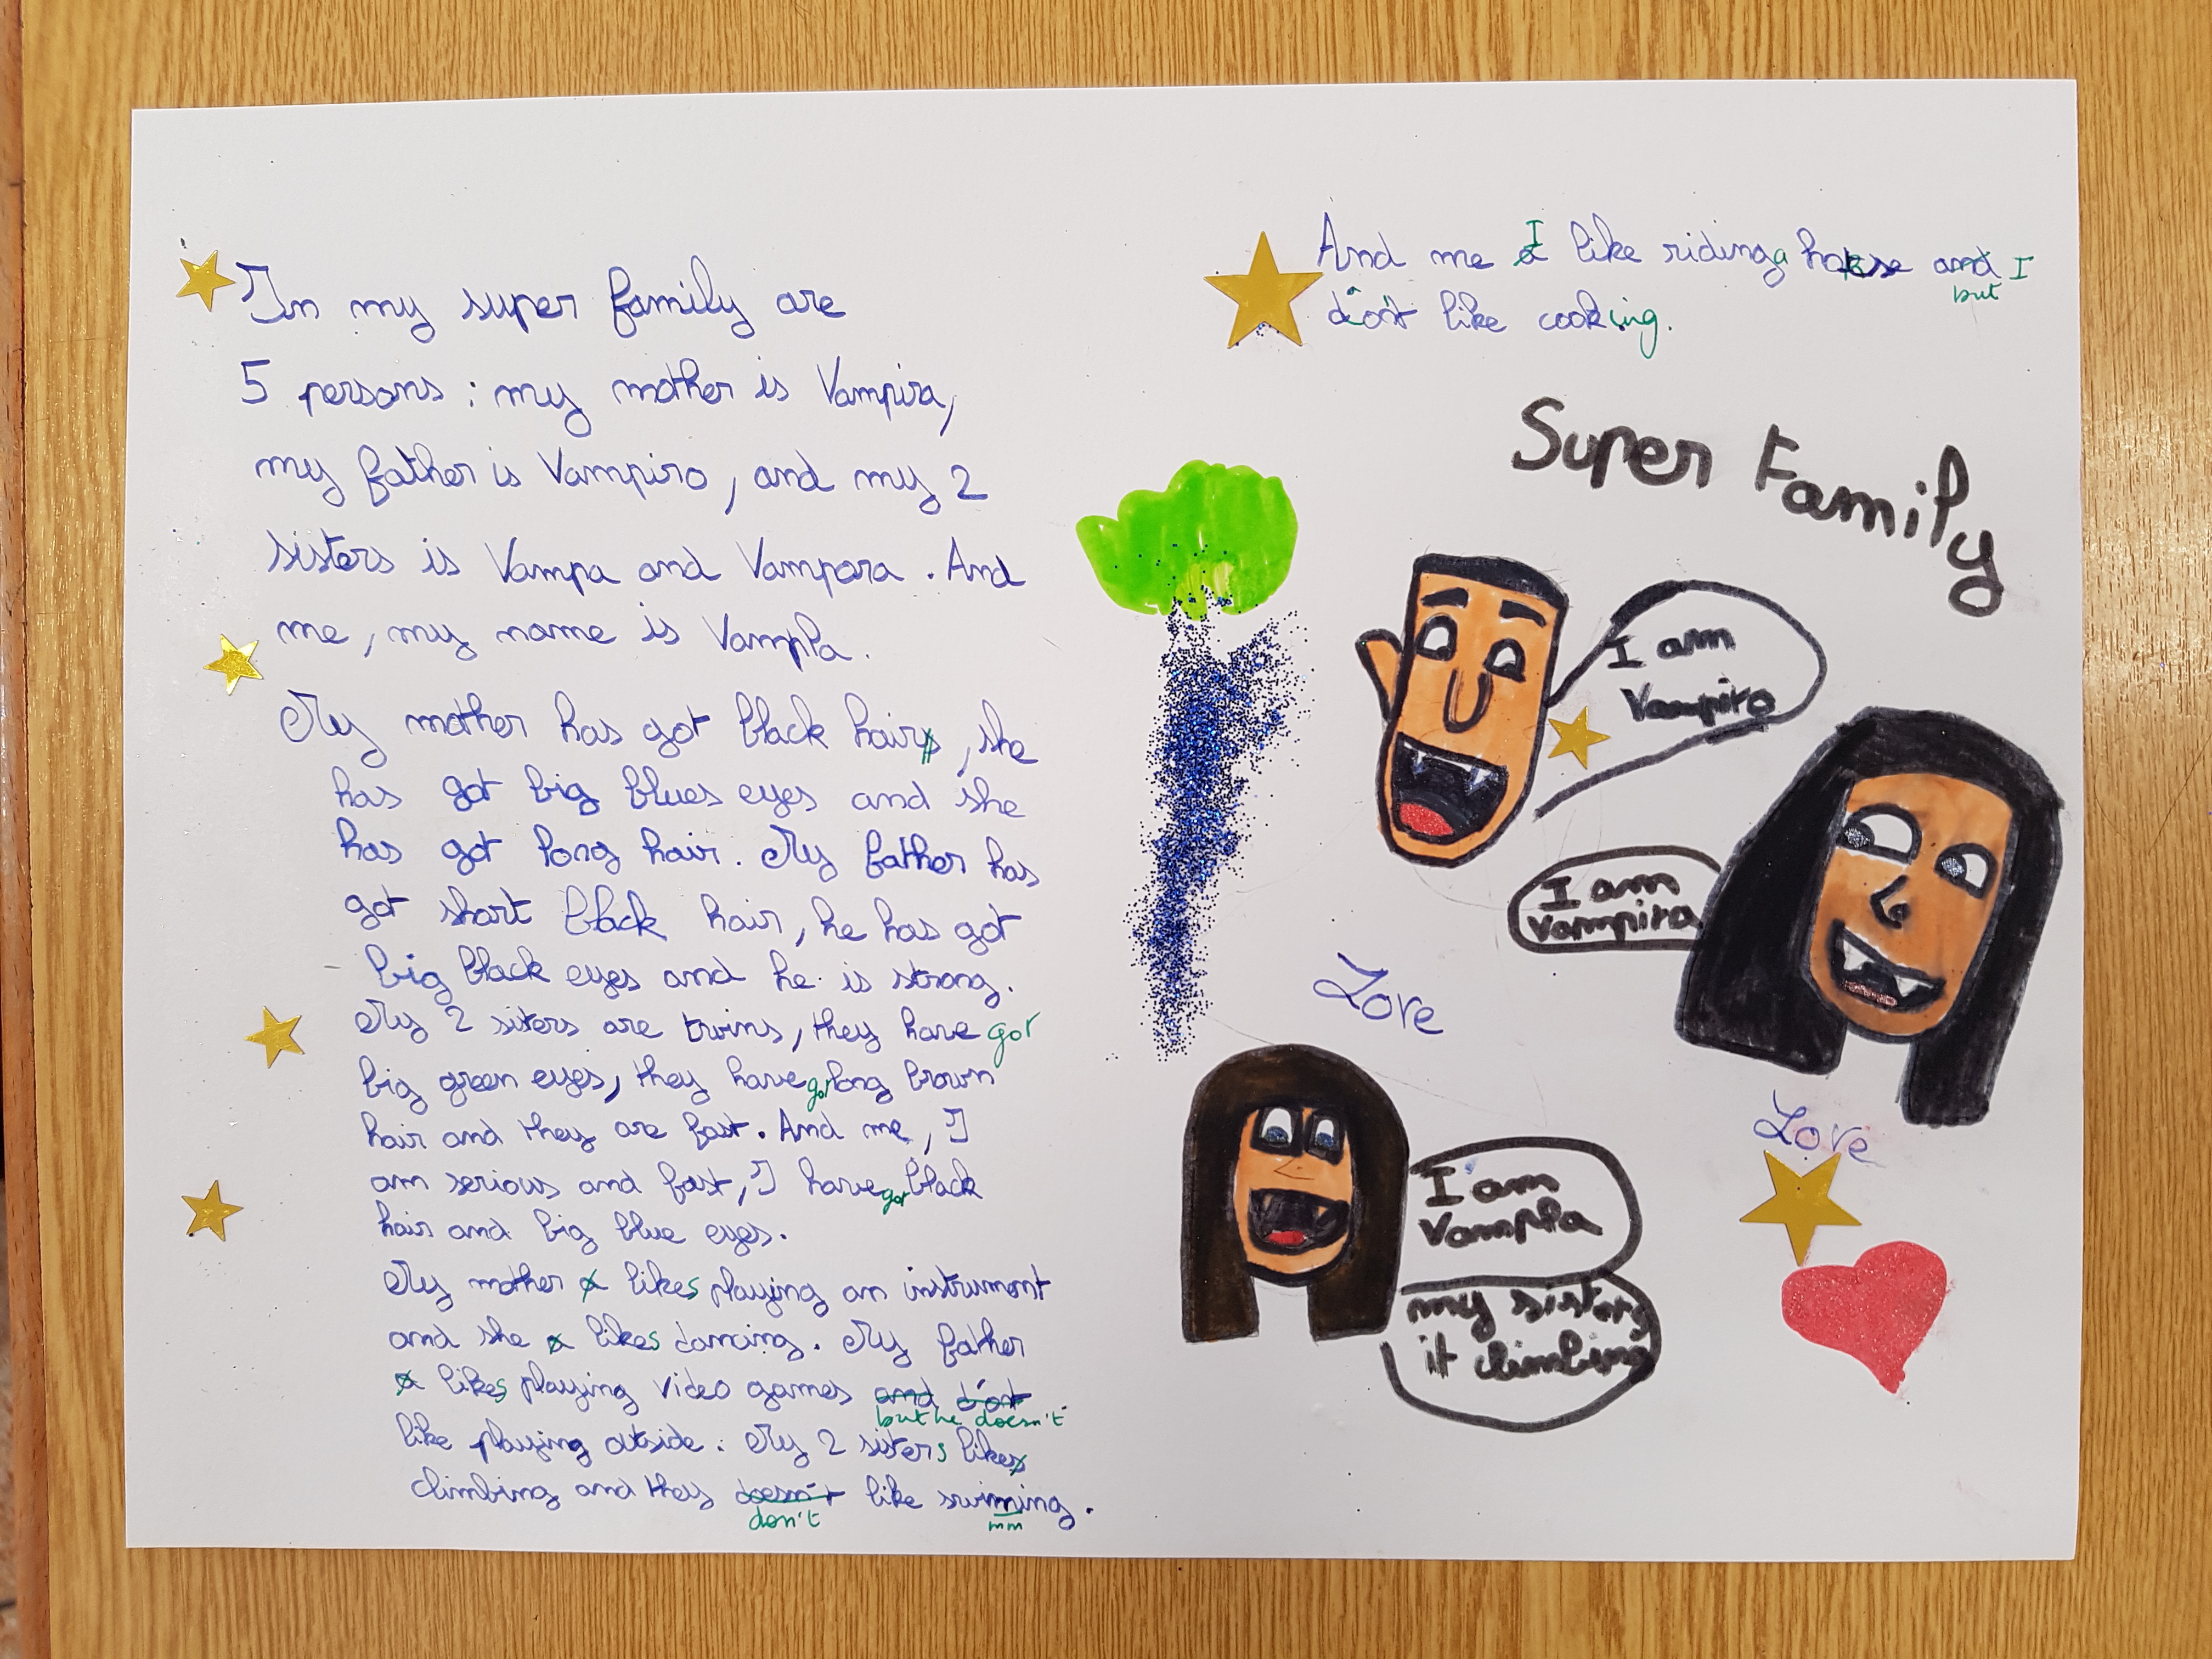 In my super family are
5 persons : my mother is Vampira,
my father is Vampiro, and my 2
sisters is Vampa and Vampara. And
me, my name is Vampla.
My mother has got black hairs, she
has got big blues eyes and she
has got long hair. My father has
got short black hair, he has got
big black eyes and he is strong.
My 2 sisters are twins, they have got
big green eyes, they have got long brown
hair and they are fast. And me, I
am serious and fast, I have got black
hair and big blue eyes.
My mother a likes playing an instrument
and she a likes dancing. My father
a likes playing video games and do't
but he doesn't
like playing outside. My 2 sisters likes
climbing and they doesn't like swiming.
don't mm
And me I like riding a horse and I
but
don't like cooking.
Super Family
I am
Vampiro
I am
Vampira
Love
Love
I am
Vampla
my sisters
it climbing